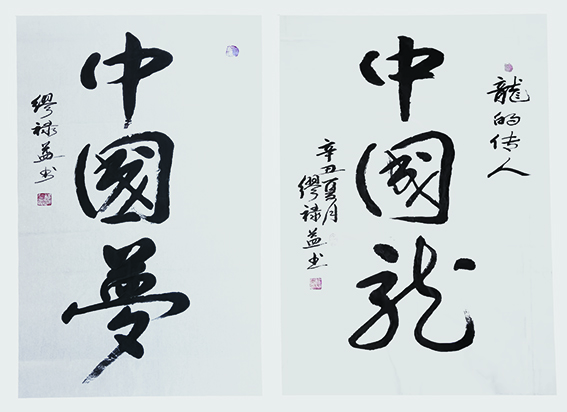 中國夢
缪禄益书
龍的传人
中國龙
辛丑夏月
缪禄益书